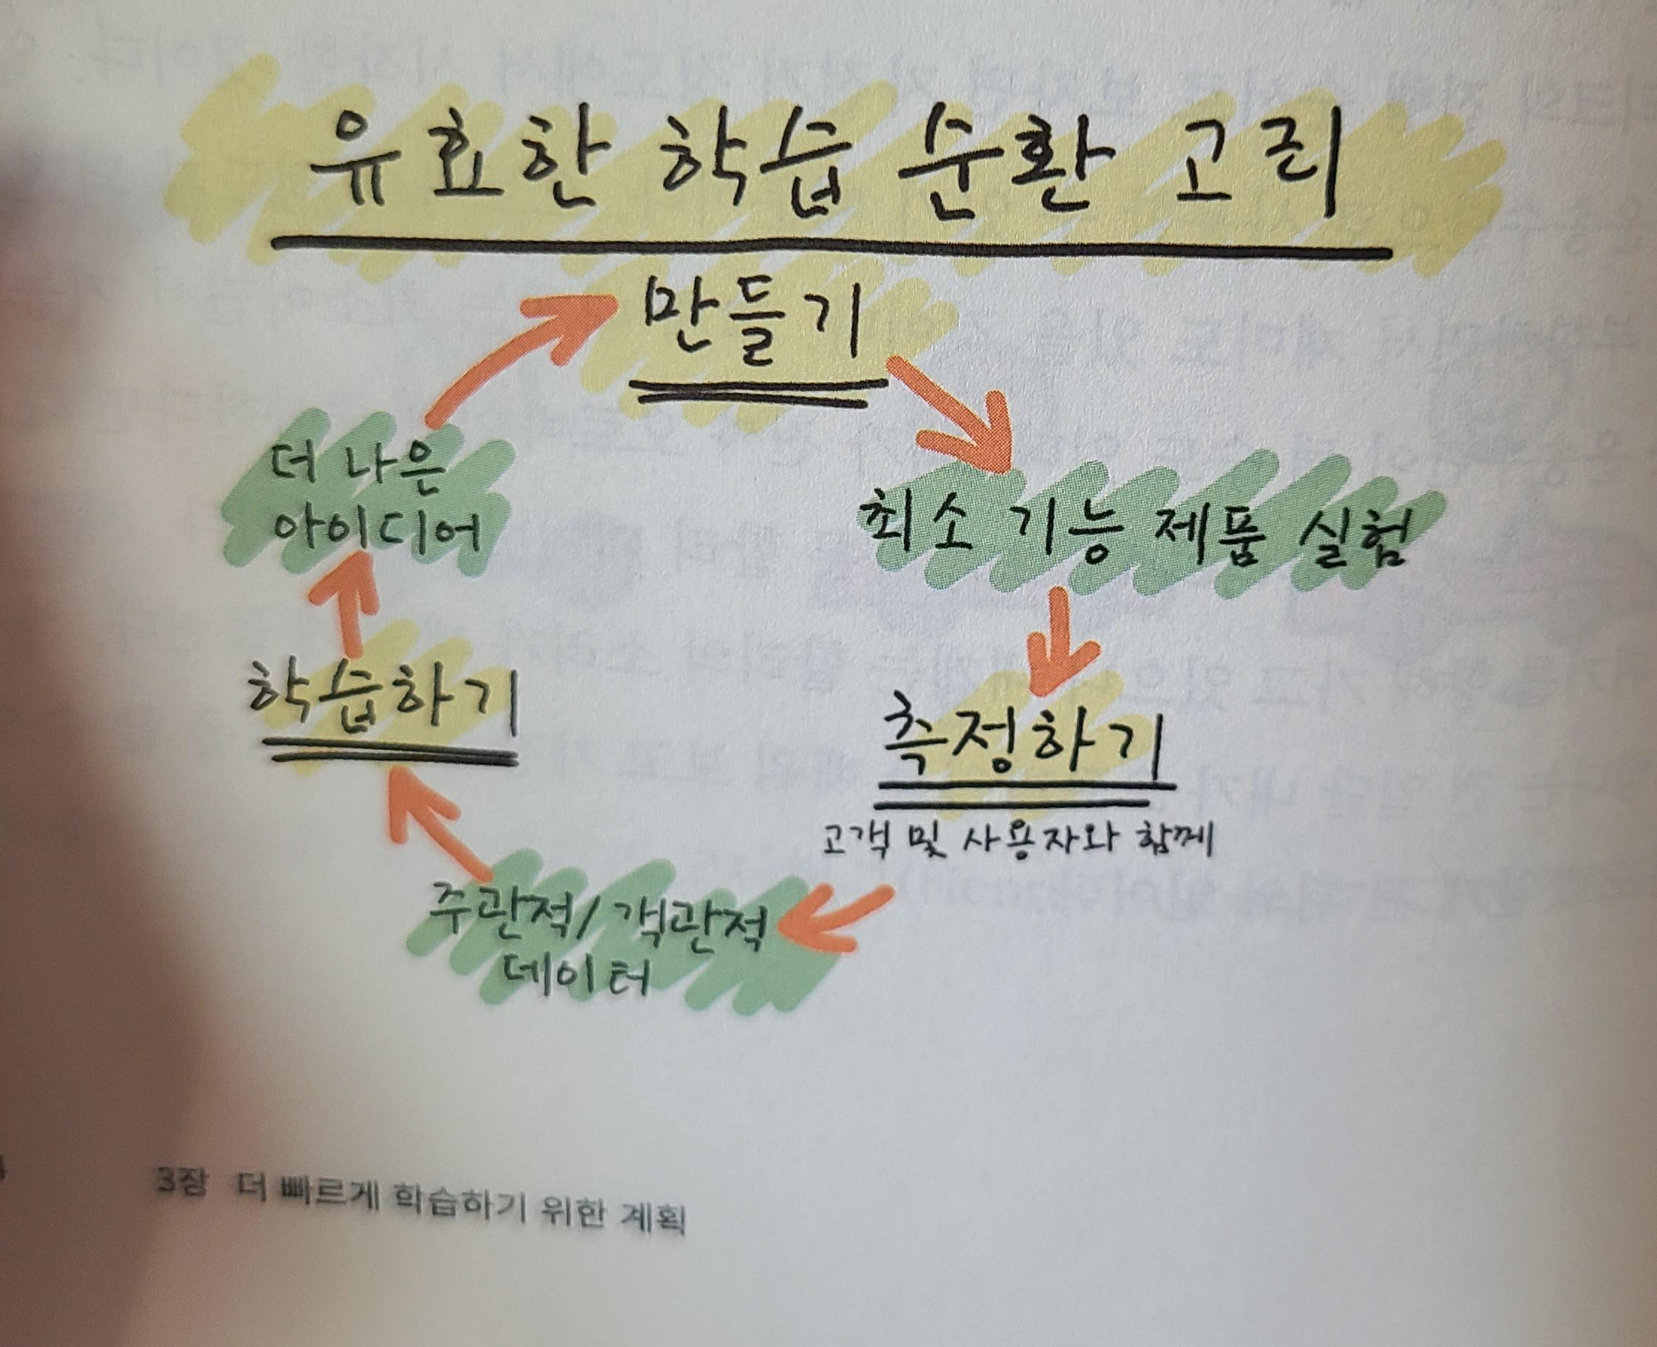 유효한 학습 순환 고리
만들기
최소 기능 제품 실험
측정하기
고객 및 사용자와 함께
주관적/객관적
데이터
학습하기
더 나은
아이디어
3장 더 빠르게 학습하기 위한 계획